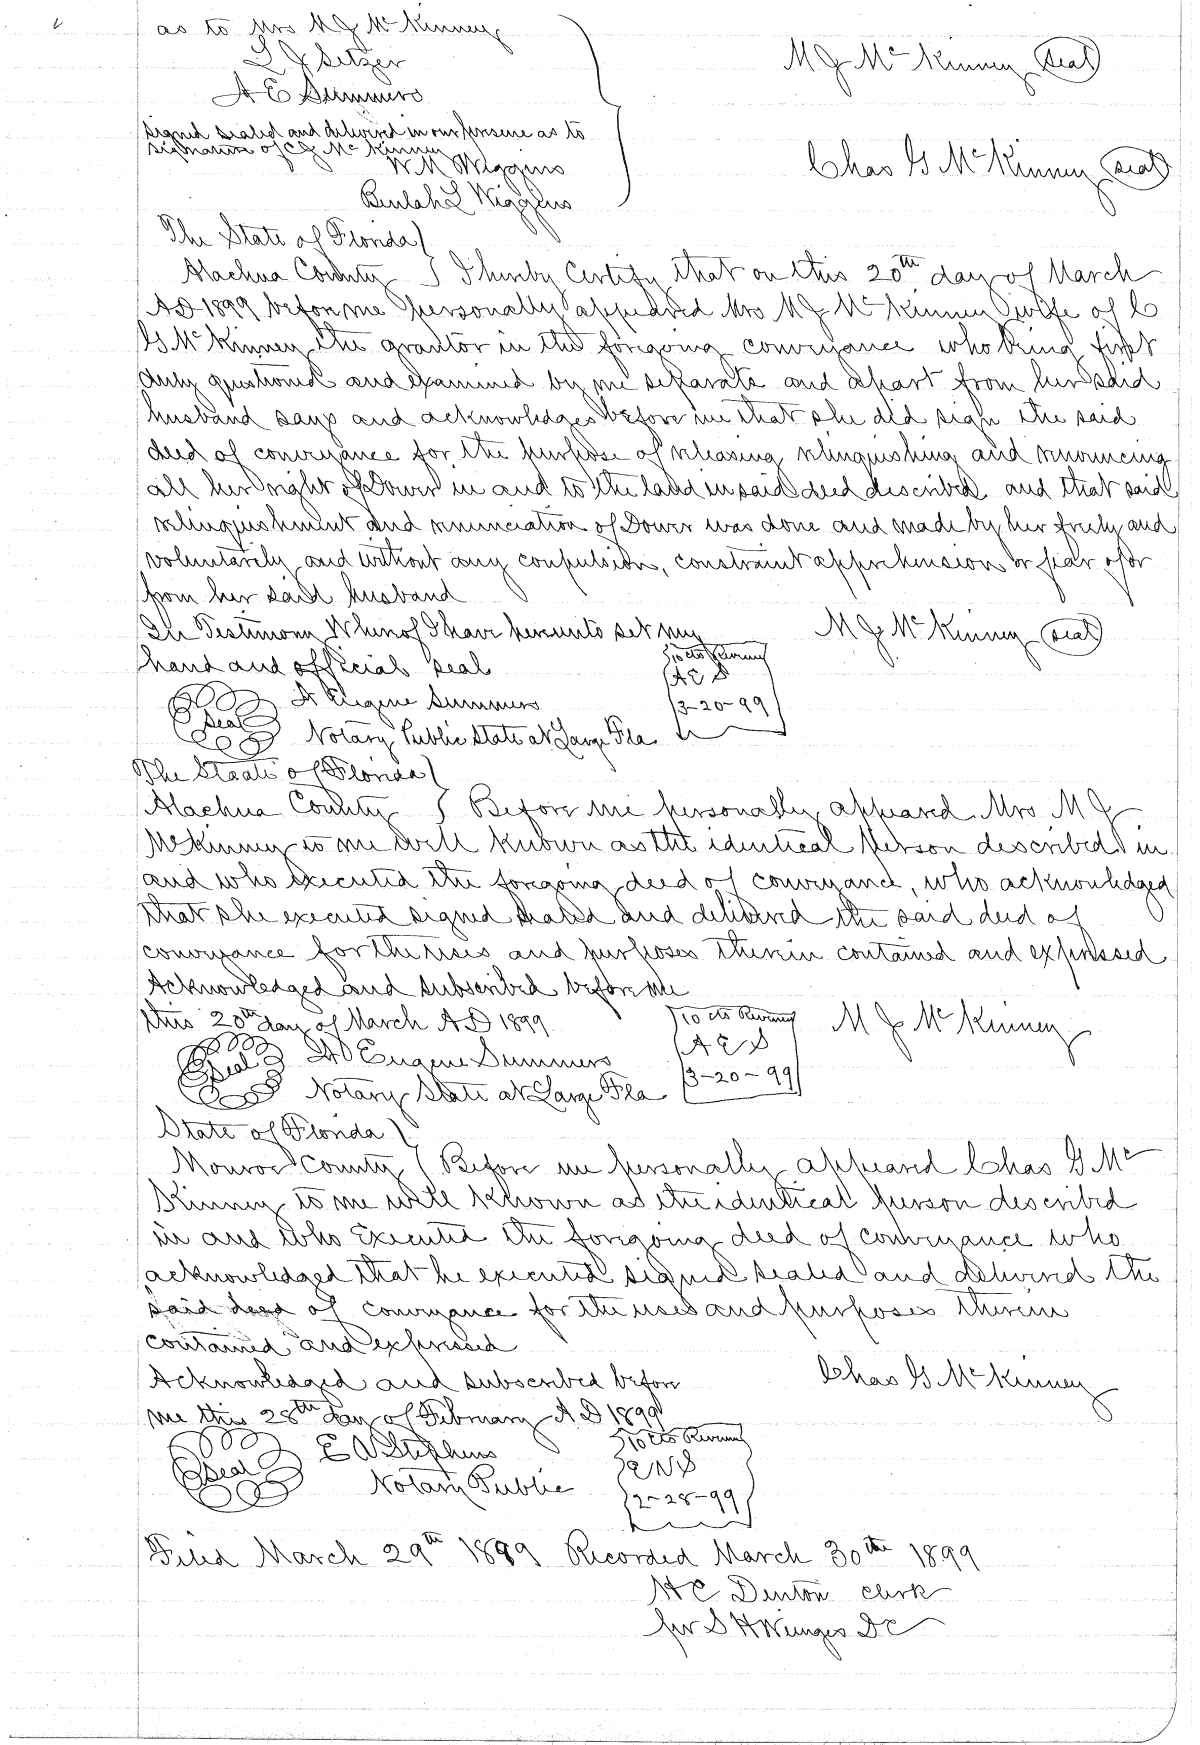 as to Mrs M J McKinney
L J Setzer
A E Summers
M J McKinney seal
Signed sealed and delivered in our presence as to
signature of C G McKinney
W M Wiggins
Beulah L Wiggins
Chas G McKinney seal
The State of Florida
Alachua County I hereby Certify that on this 20th day of March
AD 1899 before me personally appeared Mrs M J McKinney wife of C
G McKinney the grantor in the foregoing conveyance who being first
duly questioned and examined by me separate and apart from her said
husband says and acknowledges before me that she did sign the said
deed of conveyance for the purpose of releasing relinquishing and renouncing
all her right of Dower in and to the land in said deed described and that said
relinquishment and renunciation of Dower was done and made by her freely and
voluntarily and without any compulsion, constraint apprehension or fear of or
from her said husband
In Testimony Whereof I have hereunto set my
hand and official seal
M J McKinney seal
Seal A Eugene Summers
Notary Public State at Large Fla
10 cts Revenue
A E S
3-20-99
The Staate of Florida
Alachua County Before me personally appeared Mrs M J
McKinney to me well known as the identical person described in
and who executed the foregoing deed of conveyance, who acknowledged
that she executed signed sealed and delivered the said deed of
conveyance for the uses and purposes therein contained and expressed
Acknowledged and subscribed before me
this 20th day of March A D 1899
M J McKinney
Seal A Eugene Summers
Notary State at Large Fla
10 cts Revenue
A E S
3-20-99
State of Florida
Monroe County Before me personally appeared Chas G Mc
Kinney to me well known as the identical person described
in and who executed the foregoing deed of conveyance who
acknowledged that he executed signed sealed and delivered the
said deed of conveyance for the uses and purposes therein
contained and expressed
Acknowledged and subscribed before
me this 28th day of February A D 1899
Chas G McKinney
Seal E W Stephens
Notary Public
10 cts Revenue
2-28-99
Filed March 29th 1899 Recorded March 30th 1899
H C Denton clerk
per S H Wienges D C